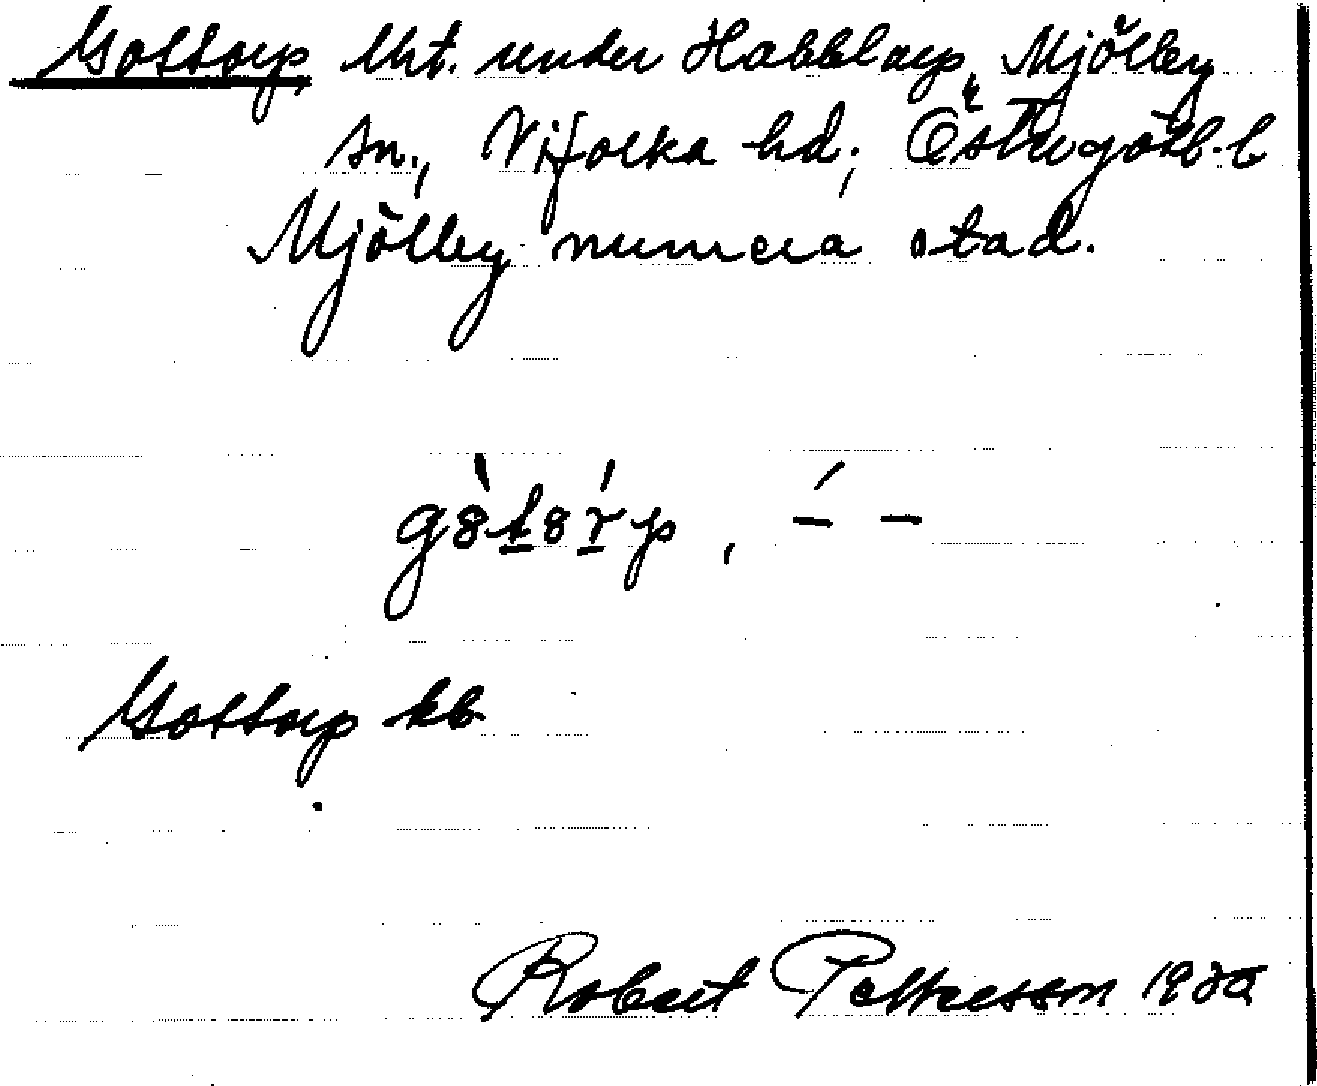 Gottorp lht. under Habblarp, Mjölby
sn., Vifolka hd; Östergötl. l
Mjölby numera stad.
Gottorp kb
Robert Pettersson